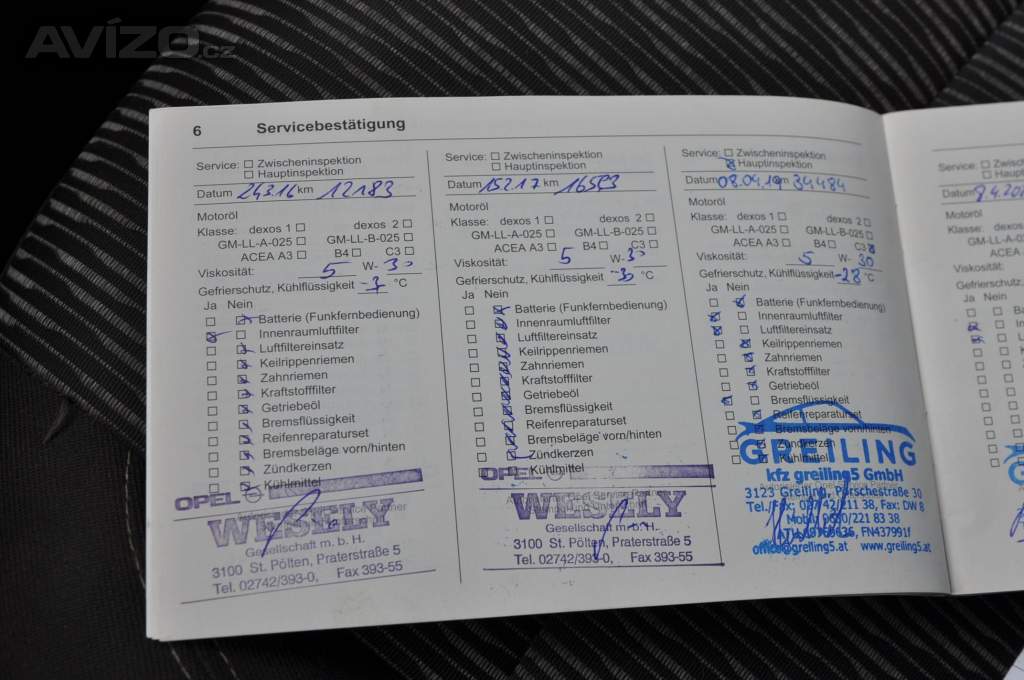 AVÍZO.cz
6 Servicebestätigung
Service: ☐ Zwischeninspektion
☐ Hauptinspektion
Datum 24316 km 12183
Motoröl
Klasse: dexos 1 ☐ dexos 2 ☐
GM-LL-A-025 ☐ GM-LL-B-025 ☐
ACEA A3 ☐ B4 ☐ C3 ☐
Viskosität: 5 W- 30
Gefrierschutz, Kühlflüssigkeit °C
Ja Nein
☐ ☒ Batterie (Funkfernbedienung)
☒ ☐ Innenraumluftfilter
☐ ☒ Luftfiltereinsatz
☐ ☒ Keilrippenriemen
☐ ☒ Zahnriemen
☐ ☒ Kraftstofffilter
☐ ☒ Getriebeöl
☐ ☒ Bremsflüssigkeit
☐ ☒ Reifenreparaturset
☐ ☒ Bremsbeläge vorn/hinten
☐ ☒ Zündkerzen
☐ ☒ Kühlmittel
OPEL
WESELY
Gesellschaft m. b. H.
3100 St. Pölten, Praterstraße 5
Tel. 02742/393-0, Fax 393-55
Service: ☐ Zwischeninspektion
☐ Hauptinspektion
Datum 15217 km 16503
Motoröl
Klasse: dexos 1 ☐ dexos 2 ☐
GM-LL-A-025 ☐ GM-LL-B-025 ☐
ACEA A3 ☐ B4 ☐ C3 ☐
Viskosität: 5 W- 30
Gefrierschutz, Kühlflüssigkeit -30 °C
Ja Nein
☐ ☒ Batterie (Funkfernbedienung)
☐ ☒ Innenraumluftfilter
☐ ☒ Luftfiltereinsatz
☐ ☒ Keilrippenriemen
☐ ☒ Zahnriemen
☐ ☒ Kraftstofffilter
☐ ☒ Getriebeöl
☐ ☒ Bremsflüssigkeit
☐ ☒ Reifenreparaturset
☐ ☒ Bremsbeläge vorn/hinten
☐ ☒ Zündkerzen
☐ ☒ Kühlmittel
OPEL
Opel Service Partner
WESELY
Gesellschaft m. b. H.
3100 St. Pölten, Praterstraße 5
Tel. 02742/393-0, Fax 393-55
Service: ☐ Zwischeninspektion
☒ Hauptinspektion
Datum 08.04.19 km 34484
Motoröl
Klasse: dexos 1 ☐ dexos 2 ☐
GM-LL-A-025 ☐ GM-LL-B-025 ☐
ACEA A3 ☐ B4 ☐ C3 ☒
Viskosität: 5 W- 30
Gefrierschutz, Kühlflüssigkeit -28 °C
Ja Nein
☐ ☒ Batterie (Funkfernbedienung)
☒ ☐ Innenraumluftfilter
☒ ☐ Luftfiltereinsatz
☐ ☒ Keilrippenriemen
☐ ☒ Zahnriemen
☐ ☒ Kraftstofffilter
☐ ☒ Getriebeöl
☒ ☐ Bremsflüssigkeit
☐ ☒ Reifenreparaturset
☐ ☒ Bremsbeläge vorn/hinten
☐ ☒ Zündkerzen
☐ ☒ Kühlmittel
GREILING
kfz greiling5 GmbH
3123 Greiling, Porschestraße 30
Tel./Fax: 02742/211 38, Fax: DW 8
Mobil: 0650/221 83 38
FN437991f
office@greiling5.at www.greiling5.at
Service: ☐
☐
Datum 9.4.20
Motoröl
Klasse:
GM-LL-A-0
ACEA
Viskosität:
Gefrierschutz,
Ja Nein